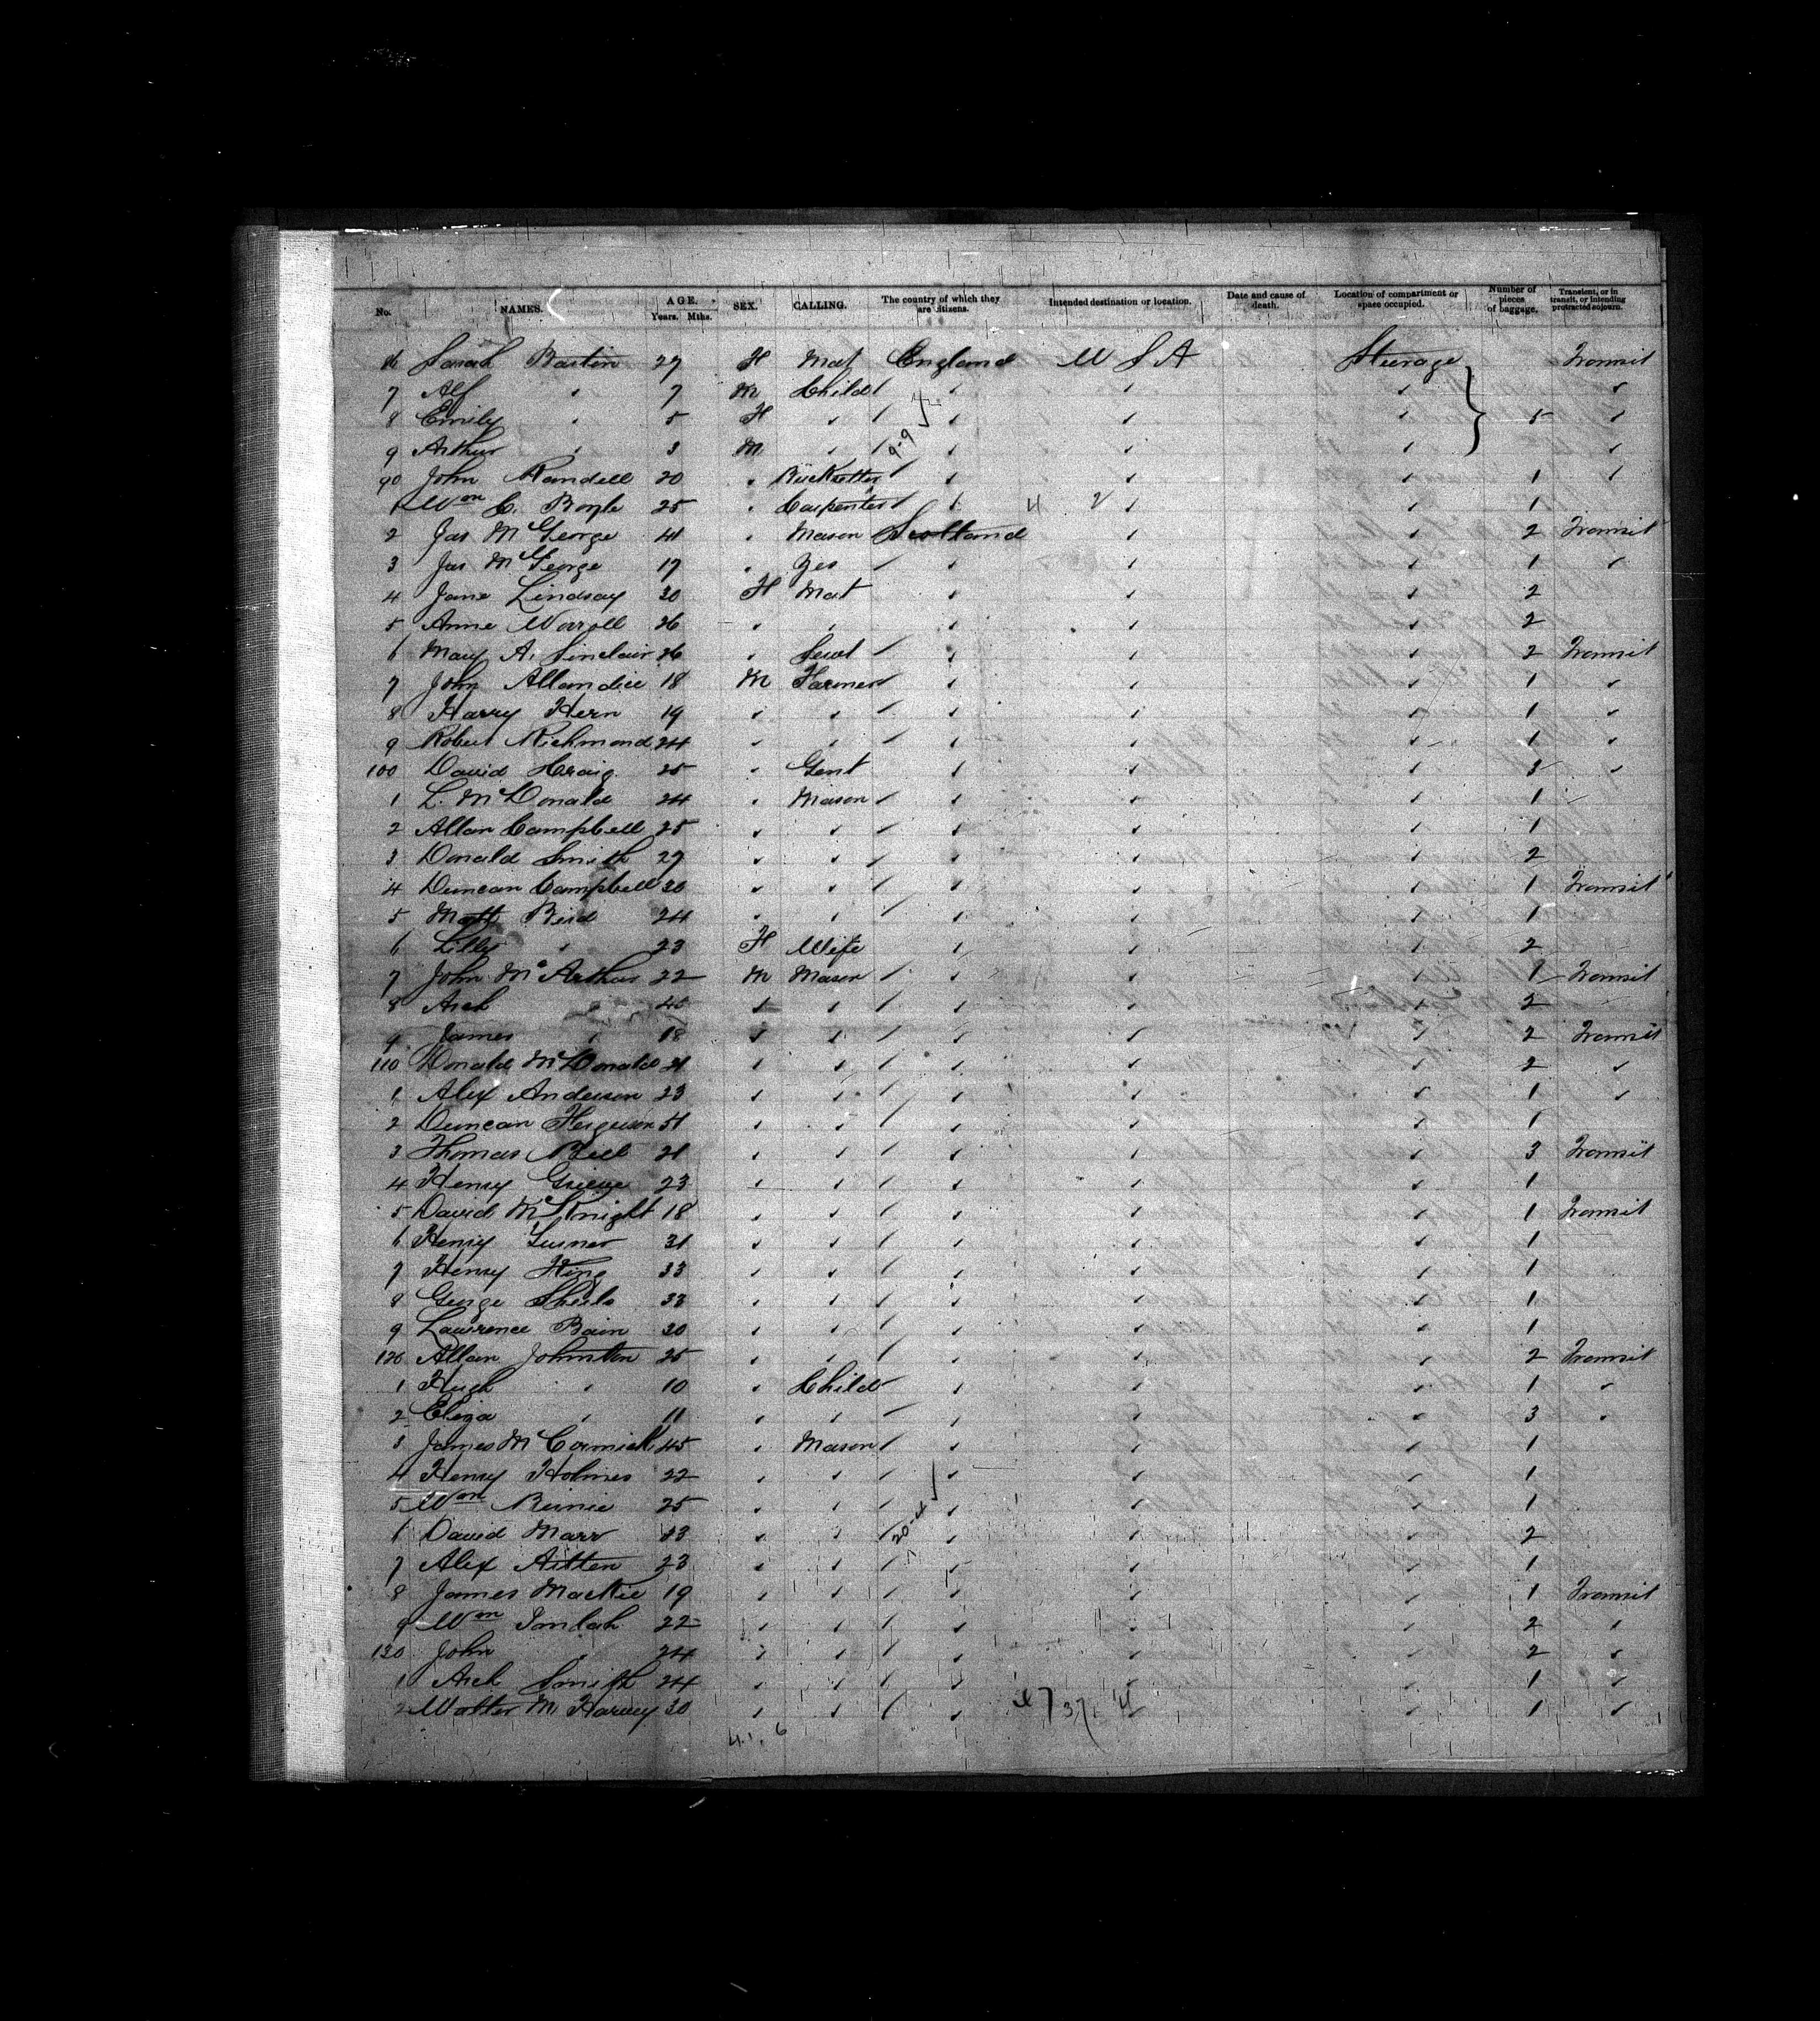 No. NAMES. AGE. Years. Mths. SEX. CALLING. The country of which they are citizens. Intended destination or location. Date and cause of death. Location of compartment or space occupied. Number of pieces of baggage. Transient, or in transit, or intending protracted sojourn.
86 Sarah Bastin 27 F Mat England U S A Steerage Transit
7 Alf " 7 M Child " " " "
8 Emily " 5 F " " " " " 5 "
9 Arthur " 3 M " " " " "
90 John Randell 20 " " " " 1 "
1 Wm C. Boyle 25 " Carpenter " " " 1
2 Jas McGeorge 41 " Mason Scotland " " 2 Transit
3 Jas McGeorge 17 " " " " 1 "
4 Jane Lindsay 30 F Mat " " " 2
5 Anne Worrall 26 " " " " " 2
6 Mary A. Sinclair 26 " Servt " " " 2 Transit
7 John Allandice 18 M Farmer " " " 1 "
8 Harry Hern 19 " " " " " 1 "
9 Robert Richmond 24 " " " " " 1 "
100 David Craig 25 " Gent " " " 3 "
1 L. McDonald 24 " Mason " " " 1
2 Allan Campbell 25 " " " " " 1
3 Donald Smith 27 " " " " " 2
4 Duncan Campbell 30 " " " " " 1 Transit
5 Matt Reid 24 " " " " " 1
6 Lilly " 23 F Wife " " " 2
7 John McArthur 22 M Mason " " " 1 Transit
8 Arch " " " " " " 2
9 James " 18 " " " " " 2 Transit
110 Donald McDonald 21 " " " " " 2 "
1 Alex Anderson 23 " " " " " 1 "
2 Duncan Ferguson 51 " " " " " 1
3 Thomas Bell 21 " " " " " 3 Transit
4 Henry Grieve 23 " " " " " 1
5 David McKnight 18 " " " " " 1 Transit
6 Henry 31 " " " " " 1
7 Henry King 33 " " " " " 1
8 George Sheils 33 " " " " " 1
9 Lawrence Bain 30 " " " " " 1
120 Allan Johnston 25 " " " " " 2 Transit
1 Hugh " 10 " Child " " " 1 "
2 Eliza " 11 " " " " " 3 "
3 James McCormick 45 " Mason " " " 1
4 Henry Holmes 22 " " " " " 1
5 Wm Rennie 25 " " " " " 1
6 David Marr " " " " " 2
7 Alex Aitken 23 " " " " " 1
8 James Mackie 19 " " " " " 1 Transit
9 Wm 22 " " " " " 2 "
130 John " 24 " " " " " 2 "
1 Arch Smith 24 " " " " " 1 "
2 Walter M Harvey 30 " " " " " 1 "